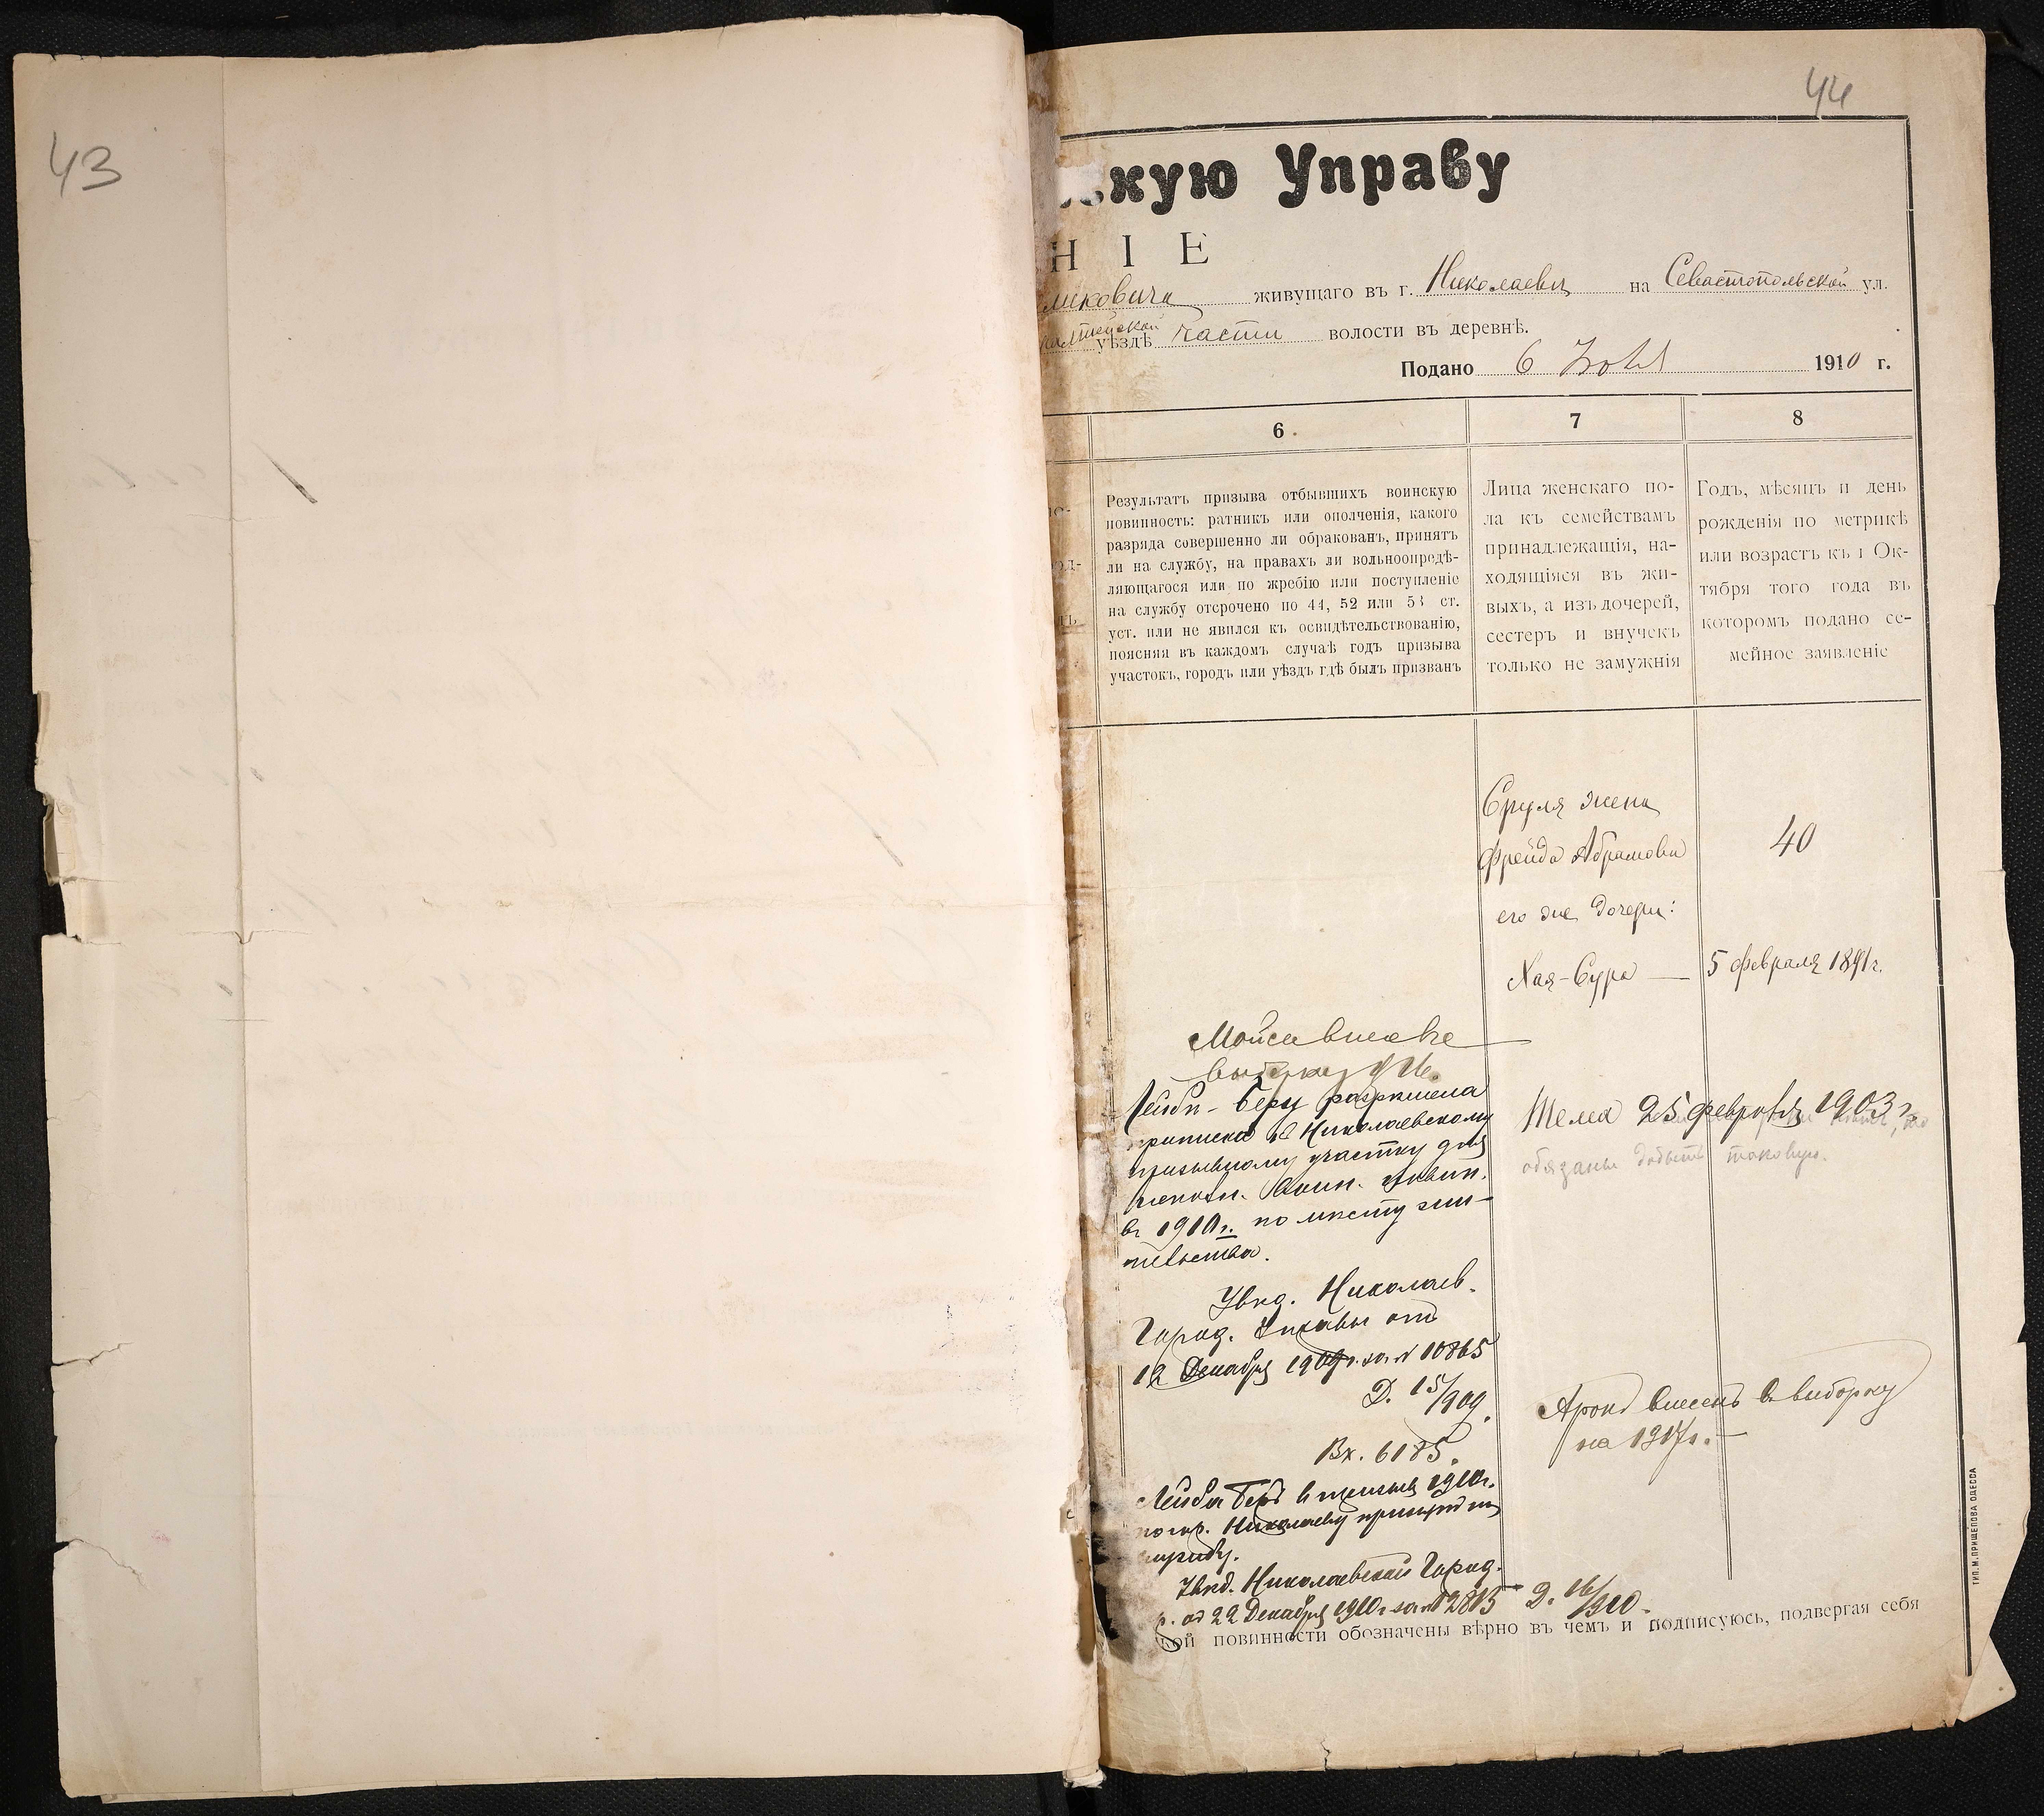 43
44
скую Управу
НІЕ
живущаго въ г. Николаевѣ на Севастопольской ул.
уѣздѣ части волости въ деревнѣ.
Подано 6 1910 г.
6
7
8
Результатъ призыва отбывшихъ воинскую
повинность: ратникъ или ополченія, какого
разряда совершенно ли обракованъ, принятъ
ли на службу, на правахъ ли вольноопредѣ-
ляющагося или по жребію или поступленіе
на службу отсрочено по 44, 52 или 53 ст.
уст. или не явился къ освидѣтельствованію,
поясняя въ каждомъ случаѣ годъ призыва
участокъ, городъ или уѣздъ гдѣ былъ призванъ
Лица женскаго по-
ла къ семействамъ
принадлежащія, на-
ходящіяся въ жи-
выхъ, а изъ дочерей,
сестеръ и внучекъ
только не замужнія
Годъ, мѣсяцъ и день
рожденія по метрикѣ
или возрастъ къ 1 Ок-
тября того года въ
которомъ подано се-
мейное заявленіе
Сруля жена
Фрейда Абрамова
40
его же дочери:
Хая-Сура — 5 февраля 1891 г.
Лейбѣ-Беру разрѣшена
приписка къ Николаевскому
призывному участку для
воин. повин.
въ 1910 г. по мѣсту жи-
тельства.
Увѣд. Николаев.
Город. Управы отъ
12 Декабря 1909 г. за № 10865
Д. 15/909.
Вх. 6185.
Тема 25 февраля 1903 г.
обязаны добыть таковую.
Аронъ внесенъ въ выборку
на 1917 г. —
Лейба Беръ въ призывъ 1910 г.
по гор. Николаеву принятъ на
службу.
Увѣд. Николаевской Город.
У. отъ 22 Декабря 1910 г. за № 12813 Д. 16/910.
кой повинности обозначены вѣрно въ чемъ и подписуюсь, подвергая себя
ТИП. М. ПРИЩЕПОВА ОДЕССА